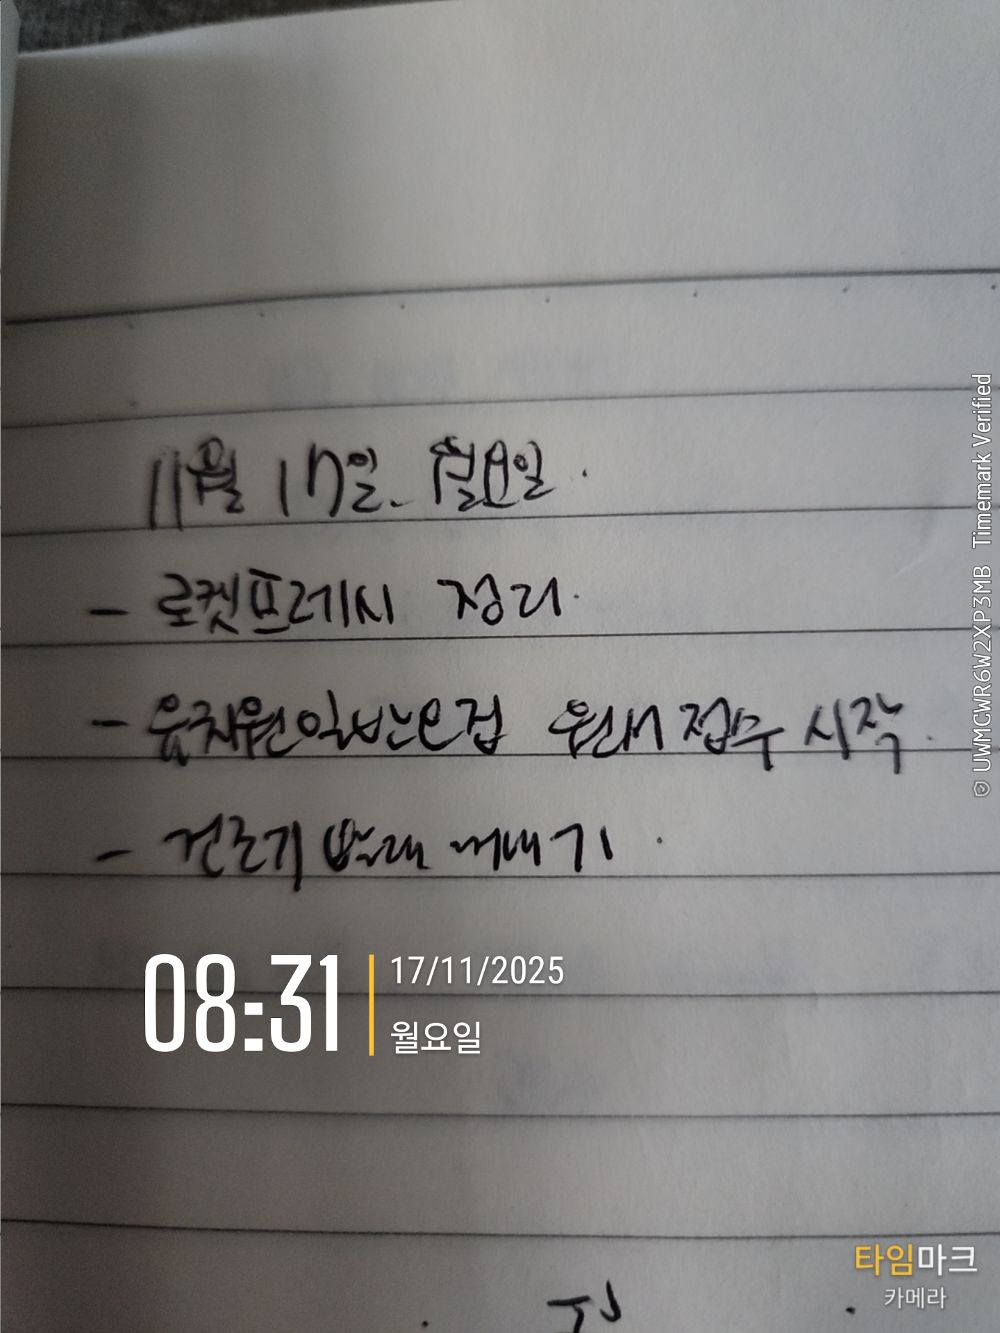 11월 17일. 월요일.
- 로켓프레시 정리.
- 유치원일반모집 원서 접수 시작.
- 건조기 빨래 꺼내기.
08:31
17/11/2025
월요일
타임마크
카메라
UWMCWR6W2XP3MB Timemark Verified